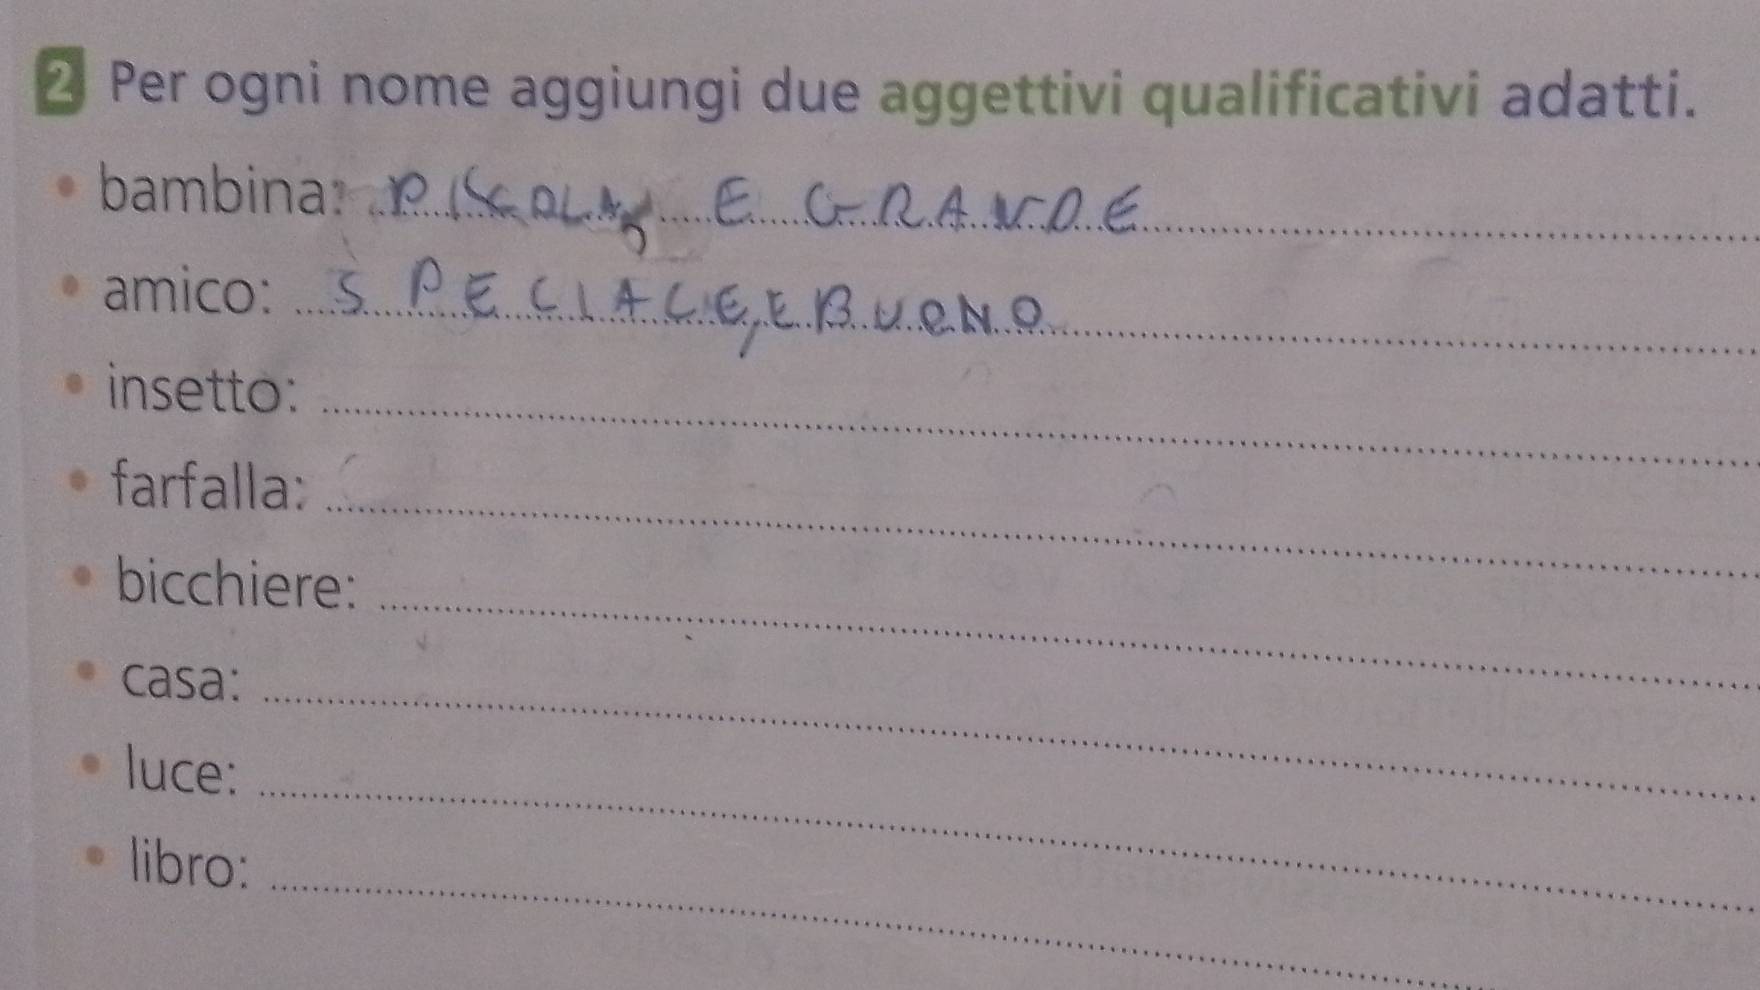 2 Per ogni nome aggiungi due aggettivi qualificativi adatti.
• bambina: PISCOLA, E GRANDE
• amico: SPECIACE, E BUONO
• insetto:
• farfalla:
• bicchiere:
• casa:
• luce:
• libro: